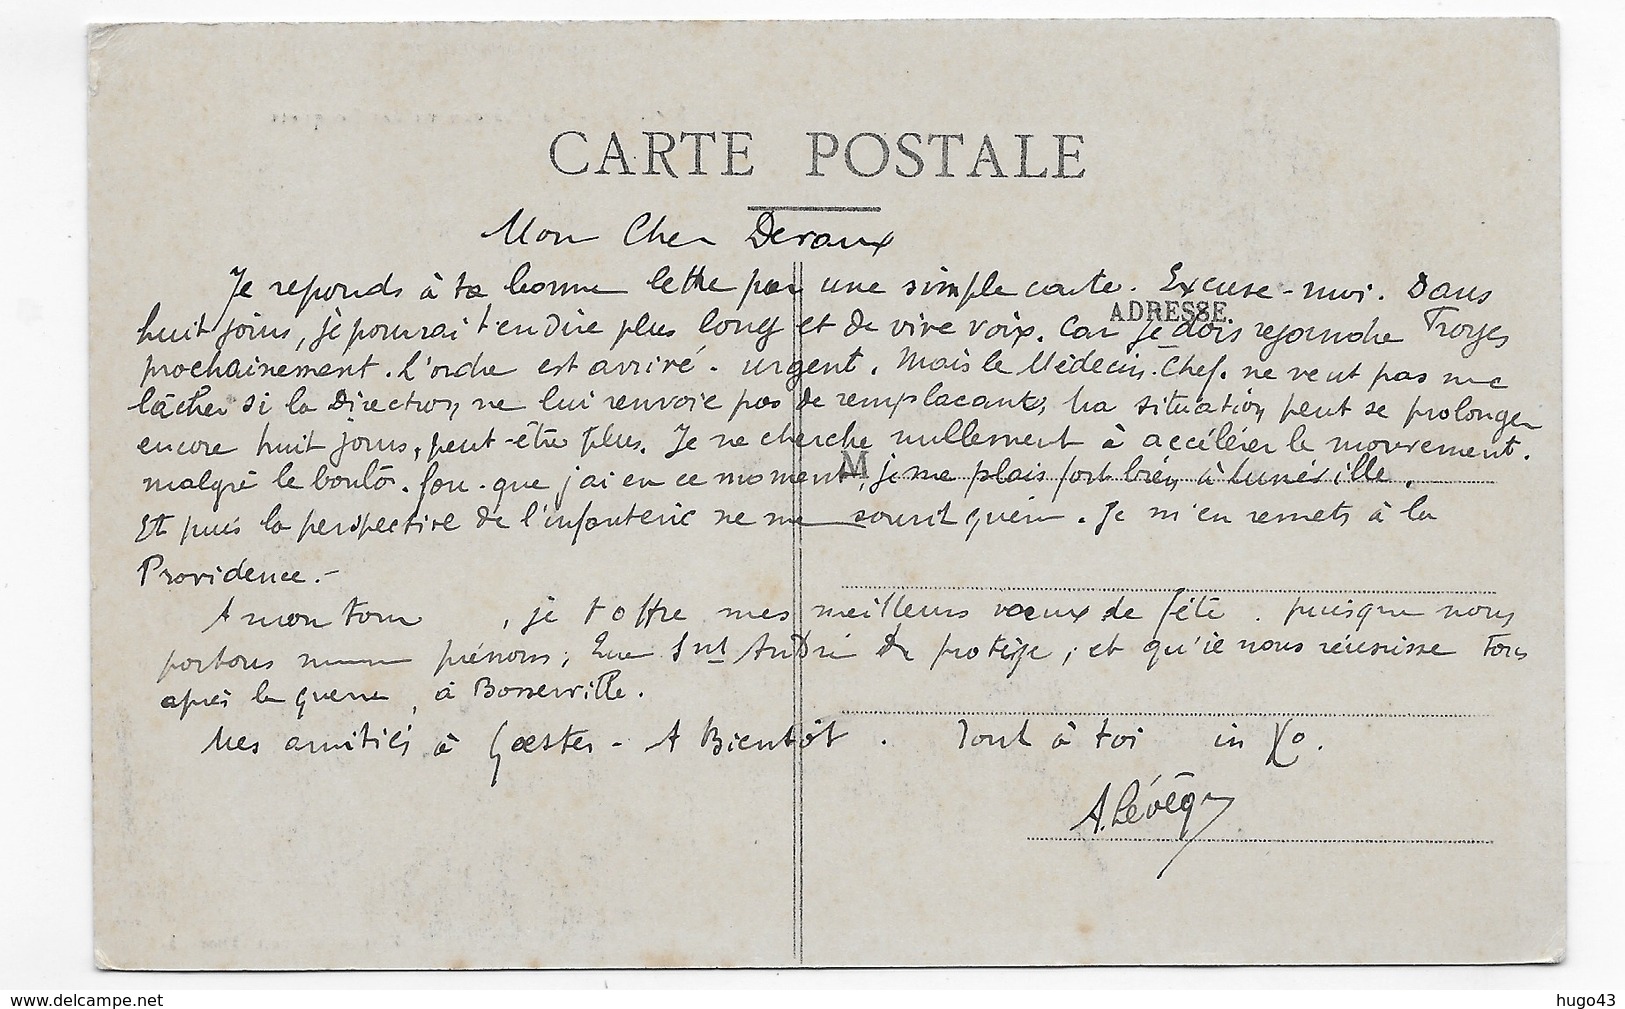 CARTE POSTALE
Mon Cher Deroux
Je reponds à ta bonne lettre par une simple carte. Excuse-moi. Dans
ADRESSE.
huit jours, je pourrai t'en dire plus long et de vive voix. Car je dois rejoindre Troyes
prochainement. L'ordre est arrivé. urgent. Mais le Médecin-Chef. ne veut pas me
lâcher si la Direction ne lui renvoie pas de remplacant. Ma situation peut se prolonger
encore huit jours, peut-être plus. Je ne cherche nullement à accélérer le mouvement.
malgré le boulot. fou que j'ai en ce moment, je me plais fort bien à Lunéville.
M
Et puis la perspective de l'infanterie ne me sourit guère. Je m'en remets à la
Providence.-
A mon tour, je t'offre mes meilleurs voeux de fête. puisque nous
portons même prénom, Que Snt André te protège, et qu'il nous réunisse tous
après la guerre, à Bosserville.
Mes amitiés à - A Bientôt. Tout à toi in Xo.
A. Lévêq
www.delcampe.net
hugo43